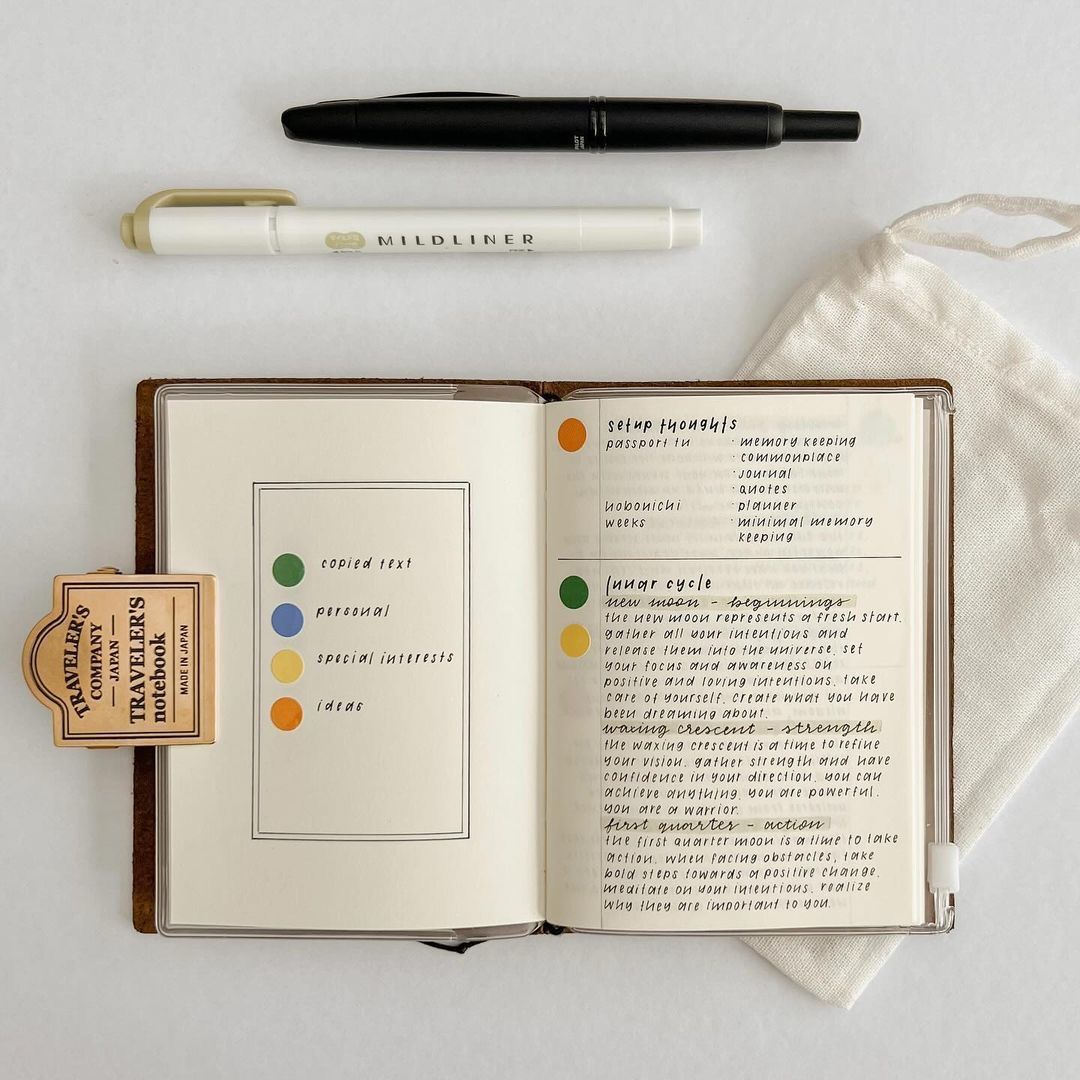 PILOT
JAPAN
MILDLINER
TRAVELER'S
COMPANY
JAPAN
TRAVELER'S
notebook
MADE IN JAPAN
copied text
personal
special interests
ideas
setup thoughts
passport tn · memory keeping
· commonplace
· journal
· quotes
hobonichi · planner
weeks · minimal memory
keeping
lunar cycle
new moon - beginnings
the new moon represents a fresh start.
gather all your intentions and
release them into the universe. set
your focus and awareness on
positive and loving intentions. take
care of yourself. create what you have
been dreaming about.
waxing crescent - strength
the waxing crescent is a time to refine
your vision. gather strength and have
confidence in your direction. you can
achieve anything. you are powerful.
you are a warrior.
first quarter - action
the first quarter moon is a time to take
action. when facing obstacles, take
bold steps towards a positive change.
meditate on your intentions. realize
why they are important to you.